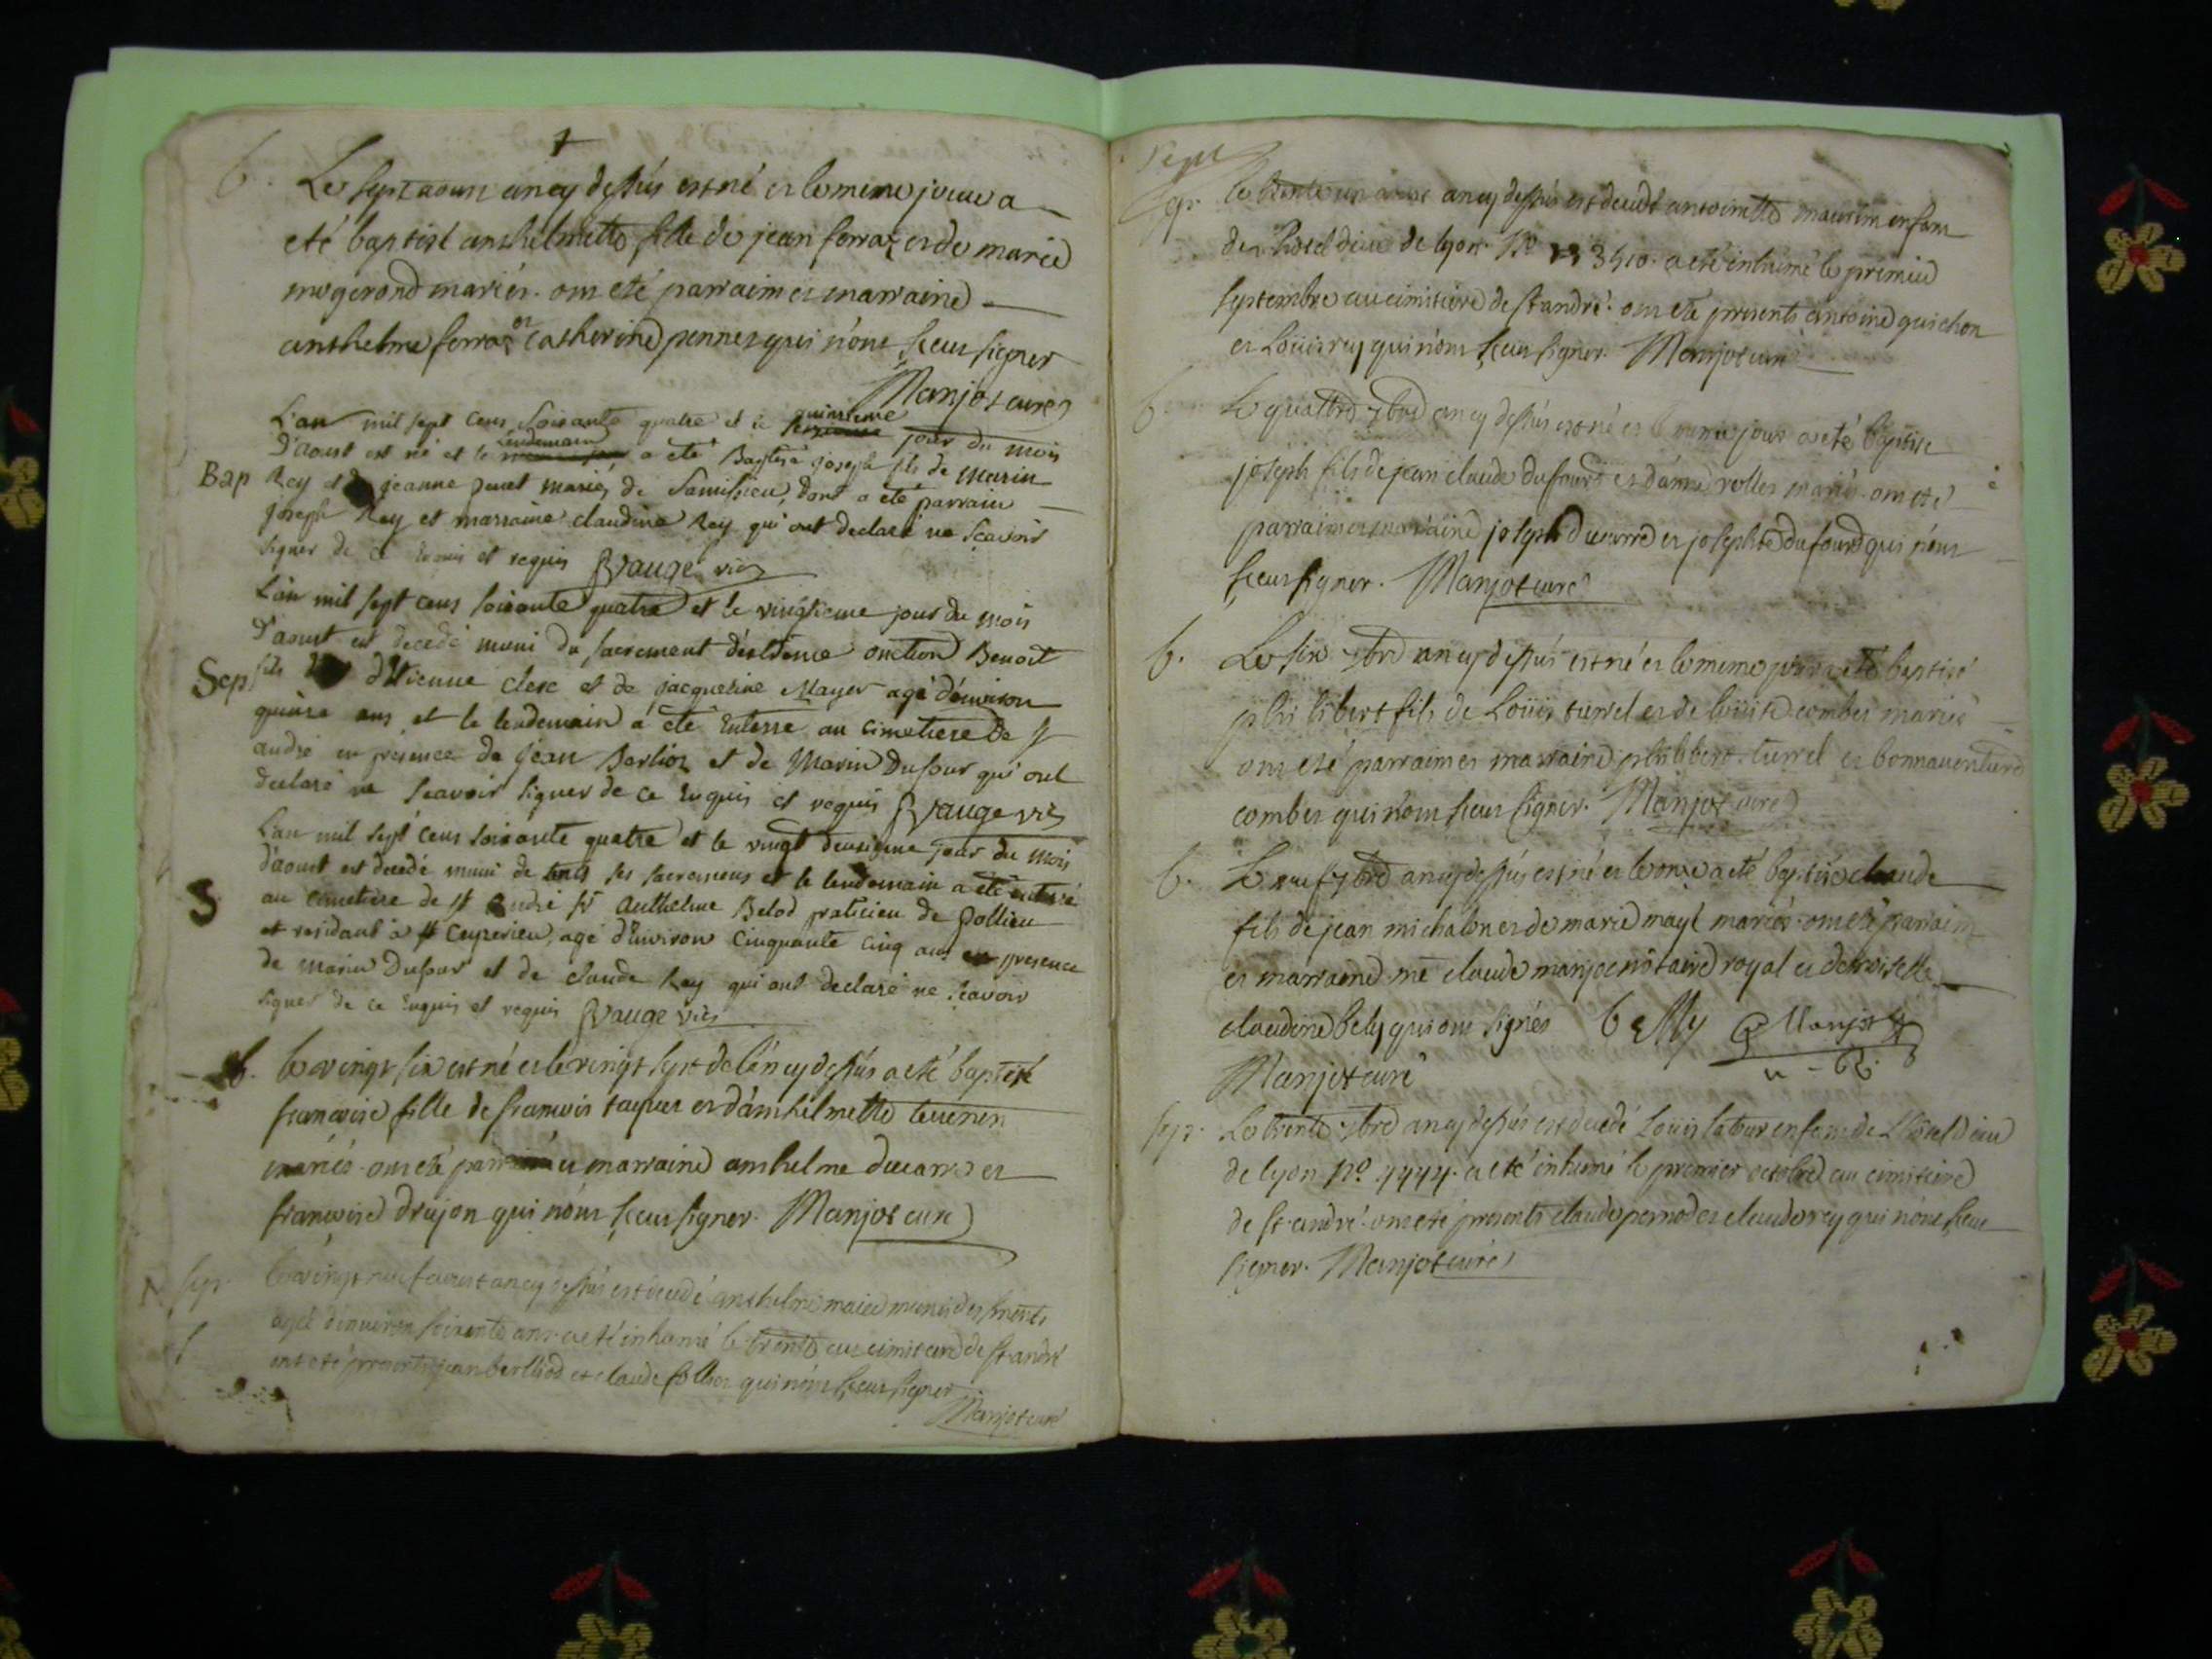 b. Le sept aoust an cy dessus est né et le meme jour a
eté baptisé anthelmette fille de jean ferraz et de marie
mogerond mariés. ont eté parrain et marraine
anthelme ferraz et catherine pennet qui n'ont sceu signer
Manjot curé
L'an mil sept cens soixante quatre et le quinzieme jour du mois
D'aoust est né et le lendemain a eté Baptisé joseph fils de Marin
Bap Rey et de jeanne mariés de dont a été parrain
joseph Rey et marraine claudine Rey qui ont declaré ne scavoir
signer de ce enquis et requis Vauge vic
L'an mil sept cens soixante quatre et le vingtieme jour du mois
D'aoust est decedé muni du sacrement d'extreme onction Benoit
Sep fils d'Etienne clerc et de jacqueline Mayer agé d'environ
quinze ans et le lendemain a été enterré au cimetiere de st
andré en présence de jean Berlioz et de Marin Dufour qui ont
declaré ne scavoir signer de ce enquis et requis Vauge vic
L'an mil sept cens soixante quatre et le vingt deuxieme jour du mois
d'aoust est decedé muni de touts ses sacremens et le lendemain a été enterré
S au cimetiere de st andré sr Anthelme Belod praticien de Pollieu
et residant à st Ceyzerieu, agé d'Environ cinquante cinq ans en presence
de Marin Dufour et de claude Rey qui ont declaré ne scavoir
signer de ce enquis et requis Vauge vic
b. le vingt six est né et le vingt sept de l'an cy dessus a eté baptisé
francoise fille de francois et d'anthelmette
mariés. ont eté parrain et marraine anthelme ducarre et
francoise drujon qui n'ont sceu signer. Manjot curé
sep. le vingt neuf aoust an cy dessus est decedé anthelme maier muni des sments
agé d'environ soixante ans. a eté inhumé le trente au cimitiere de st andré
ont eté presents jean berlliod et claude qui n'ont sceu signer
Manjot curé
Sept
sep. le trente un aoust an cy dessus est decedé antoinette maurin enfant
de l'hotel dieu de lyon. No 3510. a eté inhumé le premier
septembre au cimitiere de st andré. ont eté presents antoine guichon
et Loüis rey qui n'ont sceu signer. Manjot curé
b. Le quattre 7bre an cy dessus est né et le meme jour a eté baptisé
joseph fils de jean claude dufour et d'anne rollet mariés. ont eté
parrain et marraine joseph ducarre et josephte dufour qui n'ont
sceu signer. Manjot curé
b. Le six 7bre an cy dessus est né et le meme jour a eté baptisé
philibert fils de Loüis turrel et de loüise combet mariés
ont eté parrain et marraine philibert turrel et bonnaventure
combet qui n'ont sceu signer. Manjot curé
b. Le neuf 7bre an cy dessus est né et le onze a eté baptisé claude
fils de jean michalon et de marie mariés. ont eté parrain
et marraine me claude manjot notaire royal et demoiselle
claudine bely qui ont signés belly Manjot
Manjot curé
sep. Le trente 7bre an cy dessus est decedé Loüis latour enfant de L'hotel dieu
de lyon no. 4444. a eté inhumé le premier octobre au cimitiere
de st. andré. ont eté presents claude pernod et claude rey qui n'ont sceu
signer. Manjot curé